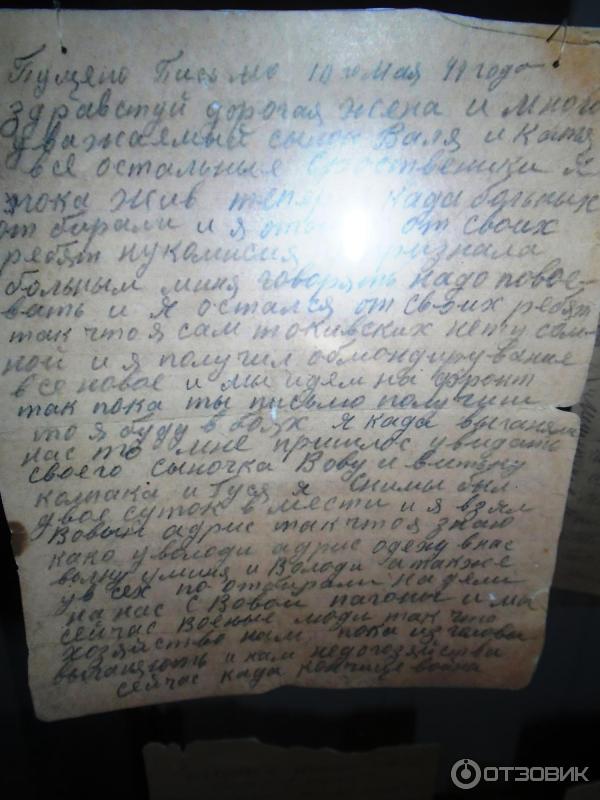 Пущено Письмо 10 го мая 44 года
здравствуй дорогая жена и много
уважаемый сынок Валя и Катя
все остальные
пока жив тепер када больных
отбирали и я от своих
ребят нукомисия признала
больным миня говорять надо повое-
вать и я остался от своих ребят
так что я сам токивских нету со
мной и я получил обмондирування
все новое и мы идем на фронт
так пока ты письмо получиш
то я буду в боях я када выганяли
нас то мне пришлос увидать
своего сыночка Вову и
колпака и Гуся я снимы был
двое суток в мести и я взял
Вовын адрис так что я знаю
како у володи адрис одежу в нас
волну у миня и Володи а также
у в сех по отбирали надели
на нас с Вовой пагоны и мы
сейчас военые люди так что
хозяйство нам пока из головы
выганяють и нам недогозяйства
сейчас када кончице война
ОТЗОВИК